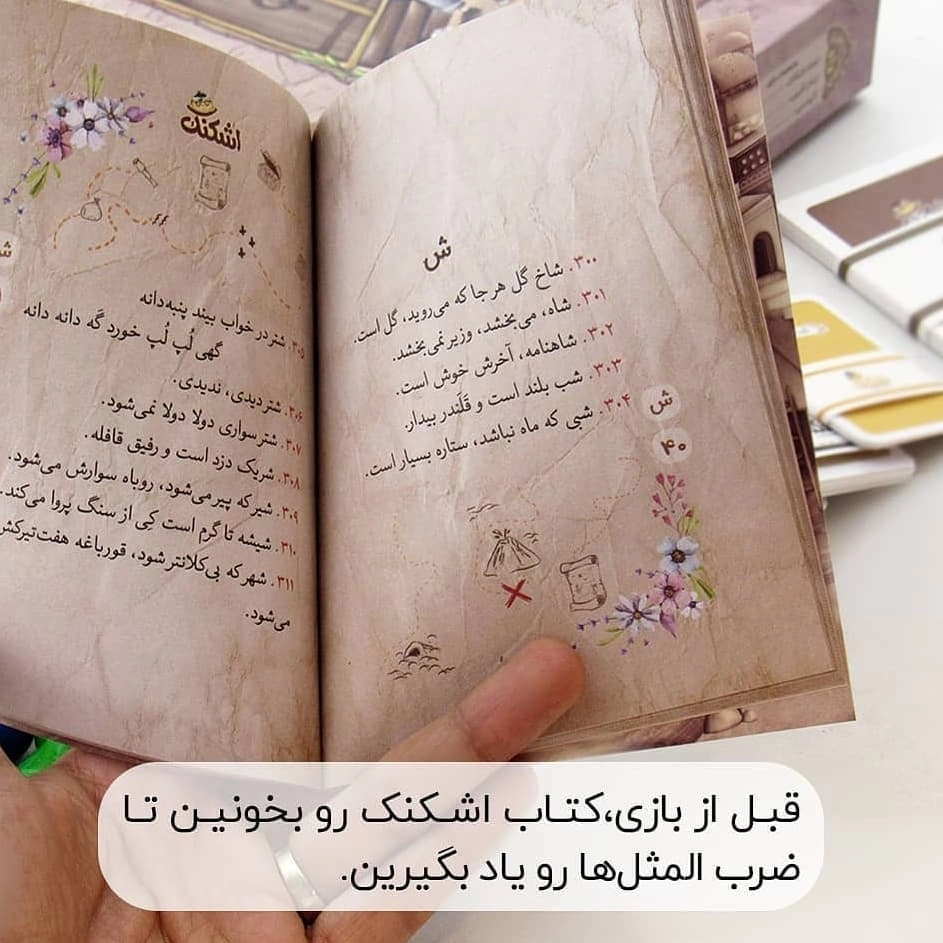 ش
۳۰۰. شاخ گل هر جا که می‌روید، گل است.
۳۰۱. شاه، می‌بخشد، وزیر نمی‌بخشد.
۳۰۲. شاهنامه، آخرش خوش است.
۳۰۳. شب بلند است و قَلَندر بیدار.
۳۰۴. شبی که ماه نباشد، ستاره بسیار است.
ش
۴۰
اشکنک
ش
۳۰۵. شتر در خواب بیند پنبه‌دانه
گهی لُپ لُپ خورد گه دانه دانه
۳۰۶. شتر دیدی، ندیدی.
۳۰۷. شترسواری دولا دولا نمی‌شود.
۳۰۸. شریک دزد است و رفیق قافله.
۳۰۹. شیر که پیر می‌شود، روباه سوارش می‌شود.
۳۱۰. شیشه تا گرم است کِی از سنگ پروا می‌کند.
۳۱۱. شهر که بی‌کلانتر شود، قورباغه هفت‌تیرکش
می‌شود.
قبل از بازی،کتاب اشکنک رو بخونین تا
ضرب المثل‌ها رو یاد بگیرین.